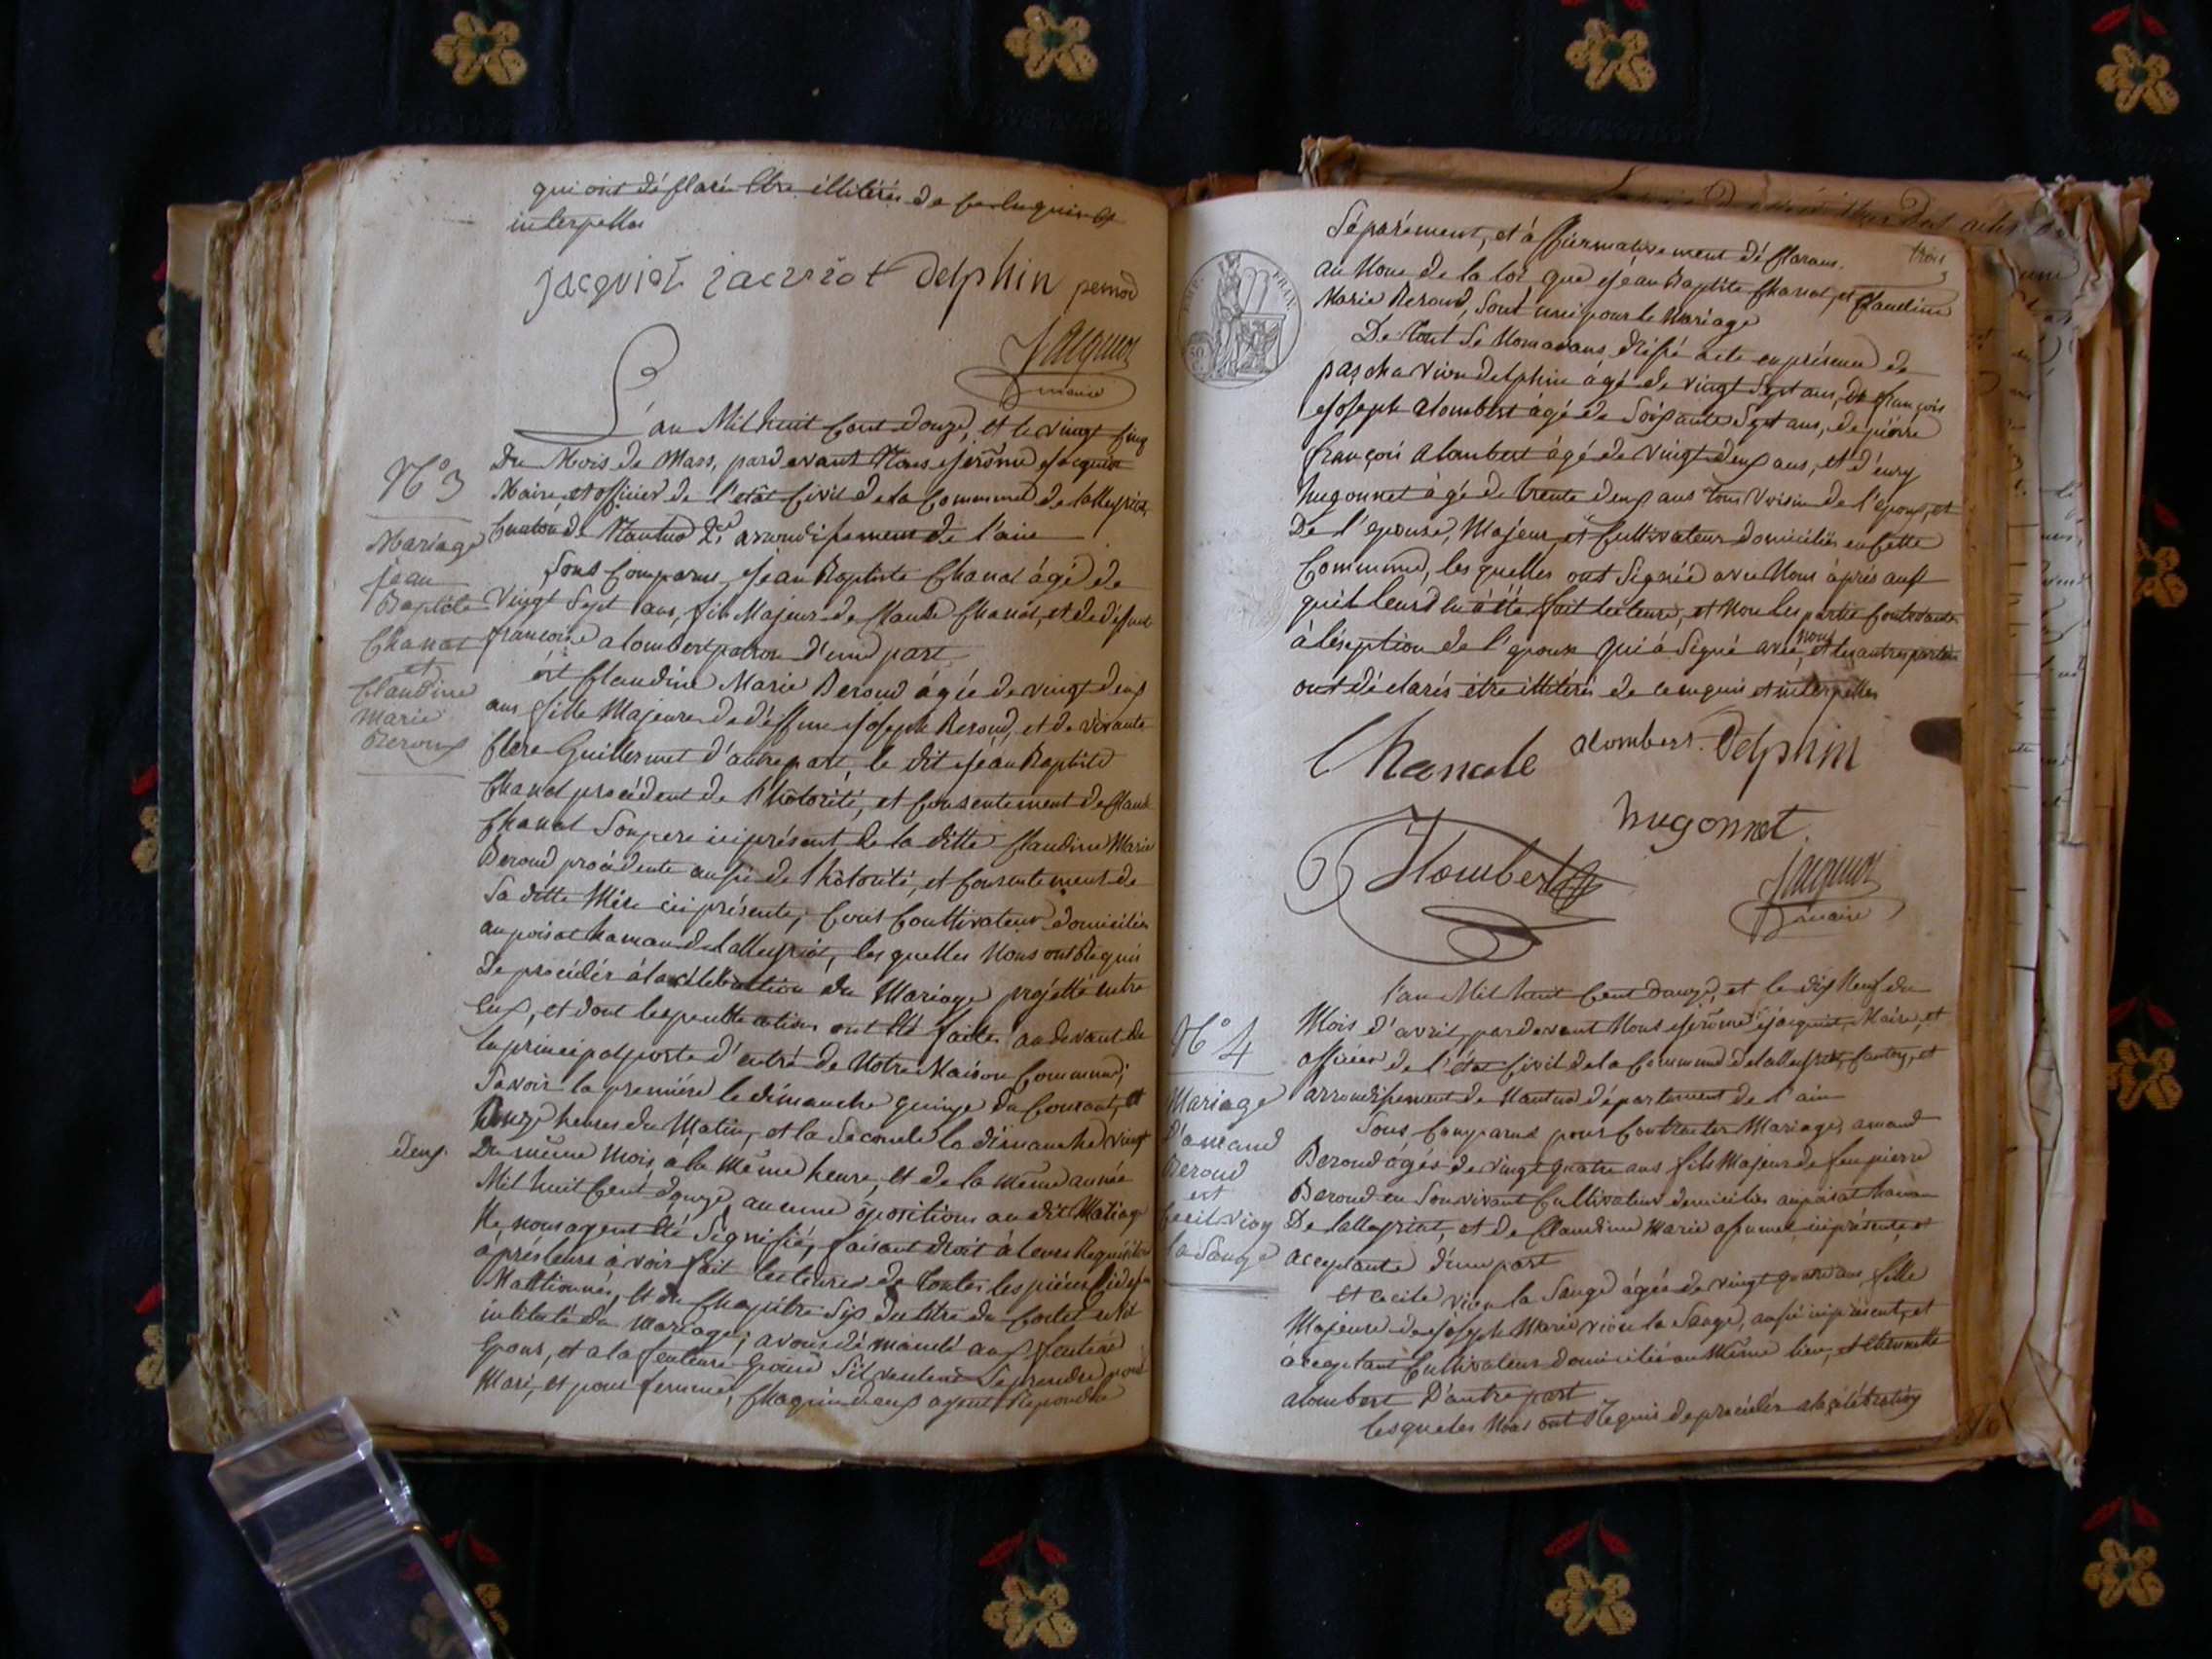 qui ont déclaré être illitérés de ce enquis et
interpellés
jacquiot jacquiot Delphin pernod
Jacquiot
maire
L'an Mil huit Cent douze, et le vingt Cinq
N° 3
Du Mois de Mars, pardevant Nous jérôme jacquiot
Maire et officier de l'état Civil de la Commune de lalleyriat,
Canton de Nantua arrondissement de l'ain
Mariage
jean
Baptiste
Chanat
et
Claudine
Marie
Beroud
Sont Comparus jean Baptiste Chanal âgé de
vingt Sept ans, fils Majeur de Claude Chanal, et de défunte
francoise alombert d'une part
et Claudine Marie Beroud âgée de vingt deux
ans fille Majeure de déffunt joseph Beroud, et de vivante
Clere Guillermet d'autre part, le dit jean Baptiste
Chanal procédent de l'hôtorité, et Consentement de Claude
Chanal Son pere ici présent de la ditte Claudine Marie
Beroud procédente aussi de l'hôtorité, et Consentement de
Sa ditte Mére ici présente, tous Coultivateur domiciliés
au poisat hameau de lalleyriat, lesquelles Nous ont Requis
De procéder à la célébration du Mariage projetté entre
Eux, et dont les publications ont été faites audevant de
la principal porte d'entré de Notre Maison Commune;
Savoir la premiére le dimanche quinze du Courant, à
onze heures du Matin, et la Seconde le dimanche vingt
deux. Du même mois, a la Même heure, et de la même année
Mil huit Cent douze, aucune opositions au dit Mariage
Ne nous ayent été Signifié, faisant droit à leurs Réquisition
après leurs avoir fait lecteure de toutes les piéces
et du Chapitre Six du titre du
intitulé du Mariage; avons démandé aux fenteur
Epoux, et a la fenteure Epouse S'il veulent Se prendre pour
Mari, et pour femme, Chaquin d'eux ayent Répondu
trois
Séparément, et affiermativement déclarons
au Nom de la loi que jean Baptiste Chanal, et Claudine
Marie Beroud, Sont uni pour le Mariage
De tout Se Nous avons dréssé acte en présence de
pascha vion delphin âgé de vingt Sept ans, De françois
joseph alombert âgé de Soixante Sept ans, de piérre
françois alombert âgé de vingt deux ans, et d'
hugonnet âgé de trente deux ans tous voisin de l'époux, et
De l'epouse, Majeur, et Cultivateur domiciliés en Cette
Commune, les quelles ont Signée avec Nous après aussi
qu'il leurs en à été fait lecteure, et Non les partie Contractante
à l'éseption de l'epoux qui à Signé avec nous, et les autres parties
ont déclarés être illitérés de ce enquis et interpellés
Chanale alombert. Delphin
hugonnet.
Alombert
Jacquiot
maire
l'an Mil huit Cent douze, et le dix Neuf du
N° 4
Mois d'avril, pardevant Nous jérôme jacquiot, Maire, et
officier de l'état Civil de la Commune de lalleyriat, Canton, et
arrondissement de Nantua département de l'ain
Mariage
D'amand
Beroud
et
Cecil vion
la Sauge
Sont Comparus pour Contracter Mariage, amand
Beroud âgés de vingt quatre ans fils Majeur de feu pierre
Beroud en Son vivant Cultivateur domiciliés au poisat hameau
De lalleyriat, et de Claudine Marie ici présente, et
acceptante d'une part
Et cecile vion la Sauge âgée de vingt quatre ans fille
Majeure de joseph Marie vion la Sauge, aussi ici présent, et
acceptant Cultivateur Domicilié au Même lieu, et
alombert D'autre part
lesqueles Nous ont Requis de procéder a la célébration